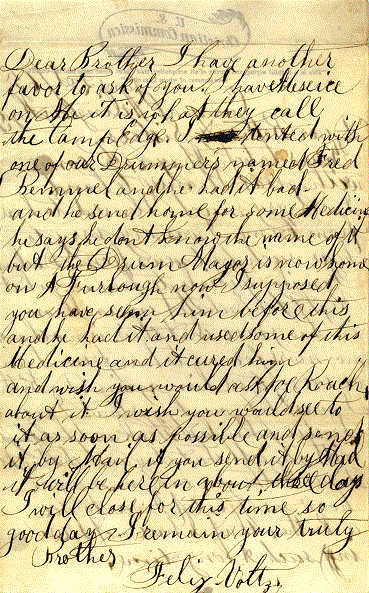 U. S.
Christian Commission
Dear Brother I have another
favor to ask of you. I have
on Me it is what they call
the Camp Edge. I tented with
one of our Drummers named Fred
and he had it bad
and he send home for some Medicine
he says he dont know the name of it
but the Drum Magor is now home
on A Furlough now I supposed
you have seen him before this
and he had it and used some of this
Medicine and it cured him
and wish you would ask Joe Roach
about it I wish you would see to
it as soon as possible and send
it by Mail if you send it by Mail
it will be here in about days
I will close for this time so
good day I remain your truly
Brother
Felix Voltz